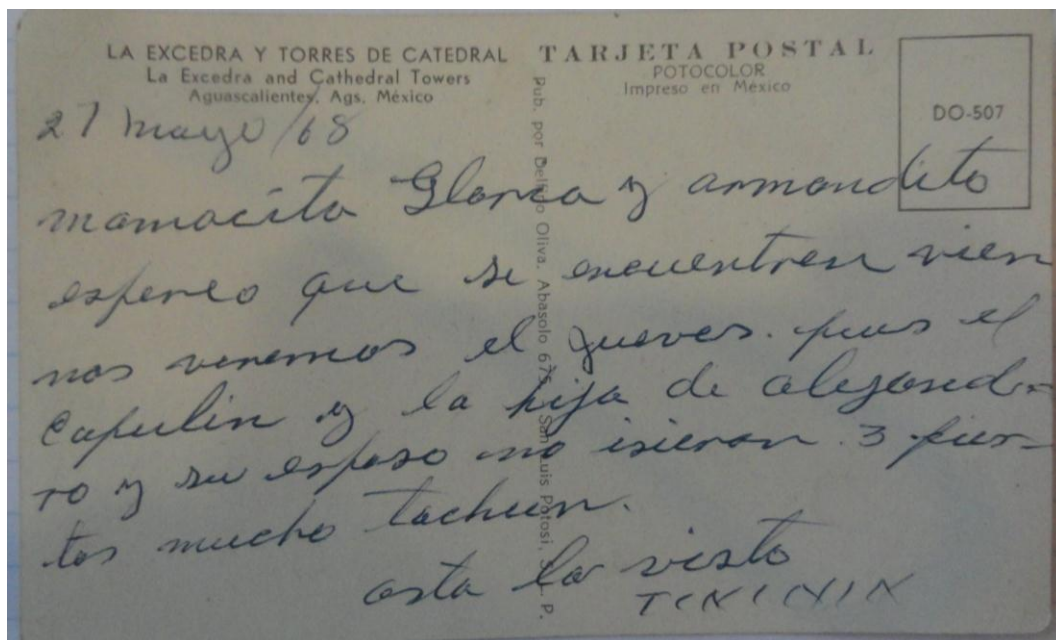 LA EXCEDRA Y TORRES DE CATEDRAL
La Excedra and Cathedral Towers
Aguascalientes, Ags. México
TARJETA POSTAL
POTOCOLOR
Impreso en México
DO-507
Pub. por Delfino Oliva. Abasolo 675, San Luis Potosi, S. L. P.
27 mayo/68
mamacita Gloria y armandito
espereo que se encuentren vien
nos veremos el jueves. pues el
Capulin y la hija de alejand-
ro y su esposo no isieron 3 puer-
tos mucho tachun.
asta la vista
TININIX